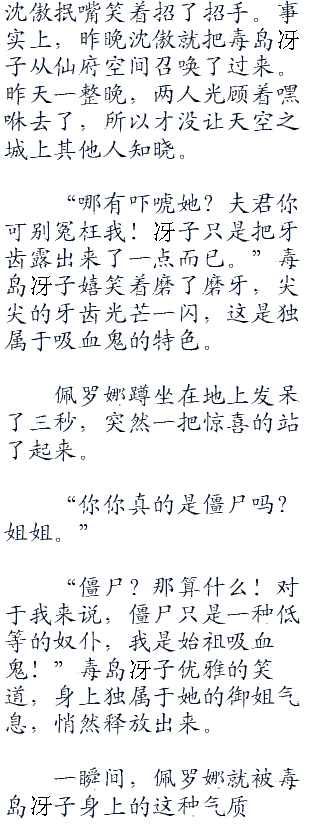 沈傲抿嘴笑着招了招手。事
实上，昨晚沈傲就把毒岛冴
子从仙府空间召唤了过来。
昨天一整晚，两人光顾着嘿
咻去了，所以才没让天空之
城上其他人知晓。
“哪有吓唬她？夫君你
可别冤枉我！冴子只是把牙
齿露出来了一点而已。”毒
岛冴子嬉笑着磨了磨牙，尖
尖的牙齿光芒一闪，这是独
属于吸血鬼的特色。
佩罗娜蹲坐在地上发呆
了三秒，突然一把惊喜的站
了起来。
“你你真的是僵尸吗？
姐姐。”
“僵尸？那算什么！对
于我来说，僵尸只是一种低
等的奴仆，我是始祖吸血
鬼！”毒岛冴子优雅的笑
道，身上独属于她的御姐气
息，悄然释放出来。
一瞬间，佩罗娜就被毒
岛冴子身上的这种气质